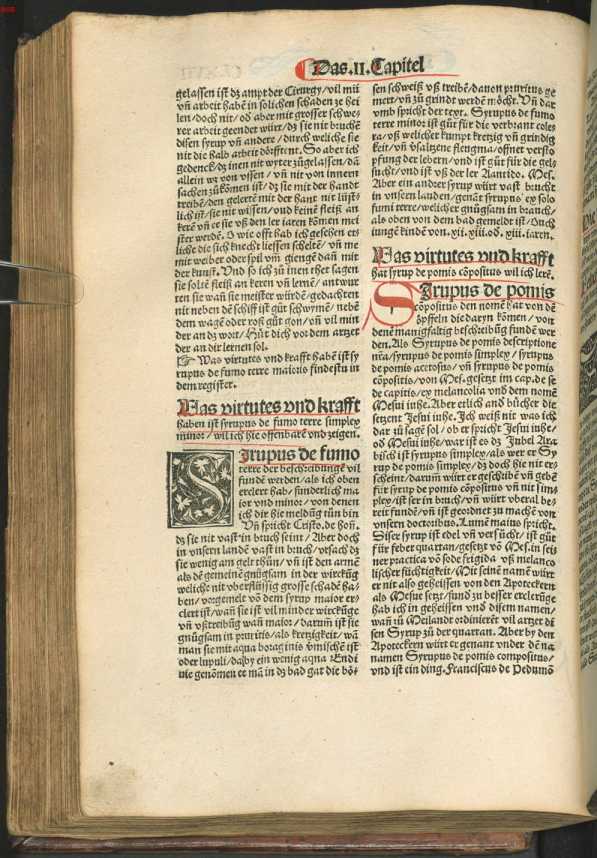 Das .II. Capitel
gelassen ist dz ampt der Cirurgy/vil mü
vñ arbeit habẽ in solichen schaden ze hei
len/doch nit/od aber mit grosser schwe-
rer arbeit geender würt/dz sie nit bruchẽ
disen syrup vñ andre/durch weliche sie
nit die halb arbeit dörfftent. So aber ich
gedenck/dz inen nit wyter zůgelassen/dã
allein wz von vssen/vñ nit von innern
sachen zůkõmen ist/dz sie mit der handt
treibẽ/den gelertẽ mit der hant nit lüst-
lich ist/sie nit wissen/vnd keinẽ fleiß an
kerẽ vñ er sie vß den .ier iaren kõmen mei
ster werdẽ. wie offt hab ich gesehen et-
liche die sich knecht liessen scheltẽ/vñ me
mit weiber oder spil vm̃ giengẽ dañ mit
der kunst. Vnd so ich zů inen thet sagen
sie soltẽ fleiß an keren vñ lernẽ/antwur
ten sie wañ sie meister würdẽ/gedachten
nit neben dẽ schiff ist gůt schwymẽ/nebẽ
dem wagẽ oder roß gůt gon/vñ vil min
der an dz wort/Hüt dich vor dem artzet
der an dir lernen sol.
☞ Was virtutes vnd krafft habẽ ist sy
rupus de fumo terre maioris findestu in
dem register.
Was virtutes vnd krafft
haben ist syrupus de fumo terre simplex
minor/wil ich hie offenbarẽ vnd zeigen.
Sirupus de fumo
terre der beschreibungẽ vil
fundẽ werden/als ich oben
erclert hab/sunderlich ma
ior vnd minor/von denen
ich dir hie meldũg tůn bin
Vñ spricht Cristo. de hon̄.
dz sie nit vast in bruch seint/Aber doch
in vnsern landẽ vast in bruch/vrsach dz
sie wenig am gelt thůn/vñ ist den armẽ
als dẽ gemeinẽ gnůgsam in der wirckũg
weliche nit vberflüssig grosse schadẽ ha-
ben/vorgemelt võ dem syrup maior er-
clert ist/wañ sie ist vil minder wirckũge
vñ vßtreibũg wañ maior/darum̃ ist sie
gnůgsam in pruritis/als kretzigkeit/wã
man sie mit aqua boraginis vm̃ischẽ ist
oder lupuli/daby ein wenig aqua Endi
uie genõmen et mã in dz bad gat die bö-
sen schweiß vß treibẽ/dauon pruritus ge
mert/vñ zů grindt werdẽ möcht. Vñ dar
vmb spricht der text. Syrupus de fumo
terre minor ist gůt für die verbrant cole
ra/vß welicher kumpt kretzig vñ grindig
keit/vñ vsaltzene flegma/offnet verstop
pfung der lebern/vnd ist gůt für die gel
sucht/vnd ist vß der ler Alantido. Mes.
Aber ein andrer syrup würt vast brucht
in vnsern landen/genãt syrupus ex solo
fumi terre/welicher gnůgsam in bruch/
als oben von dem bad gemeldt ist/Auch
iungẽ kindẽ von .xii.xiii.od .xiiii. iaren.
Was virtutes vnd krafft
hat syrup de pomis cõpositus wil ich lerẽ.
Sirupus de pomis
cõpositus den nomẽ hat von dẽ
öpffeln die daryn kõmen/von
denẽ manigfaltig beschribũg fundẽ wer
den. Als Syrupus de pomis descriptione
nr̃a/syrupus de pomis simplex/syrupus
de pomis acetosus/vñ syrupus de pomis
cõpositis/von Mes. gesetzt im cap. de se
de capitis/ex melancolia vnd dem nomẽ
Mesui iuhe. Aber etlich and bücher die
setzent Jesui iuhe. Ich weiß nit was ich
dar zů sagẽ sol/ob er spricht Jesui iuhe/
od Mesui iuhe/war ist es dz Jubel Ara
bisch ist syrupus simplex/als wer er Sy
rup de pomis simplex/dz doch hie nit er-
scheint/darum̃ würt er geschribẽ vñ gebẽ
für syrup de pomis cõpositus vñ nit sim
plex/ist ser in bruch/vñ würt vberal be-
reit fundẽ/vñ ist geordnet zů machẽ von
vnsern doctoribus. Lumẽ maius spricht.
Diser syrup ist edel vñ versůcht/ist gůt
für feber quartan/gesetzt võ Mes. in sei
ner practica võ sode frigida vß melanco
lischer füchtigkeit/Mit seinẽ namẽ würt
er nit also geheissen von den Apoteckern
als Mesue setzt/sund zů besser erclerũge
hab ich in geheissen vnd disem namen/
wañ zů Meilandt ordinierẽt vil artzet di
sen Syrup zů der quartan. Aber by den
Apoteckern würt er genant vnder dẽ na
namen Syrupus de pomis compositus/
vnd ist ein ding. Franciscus de Pedumõ